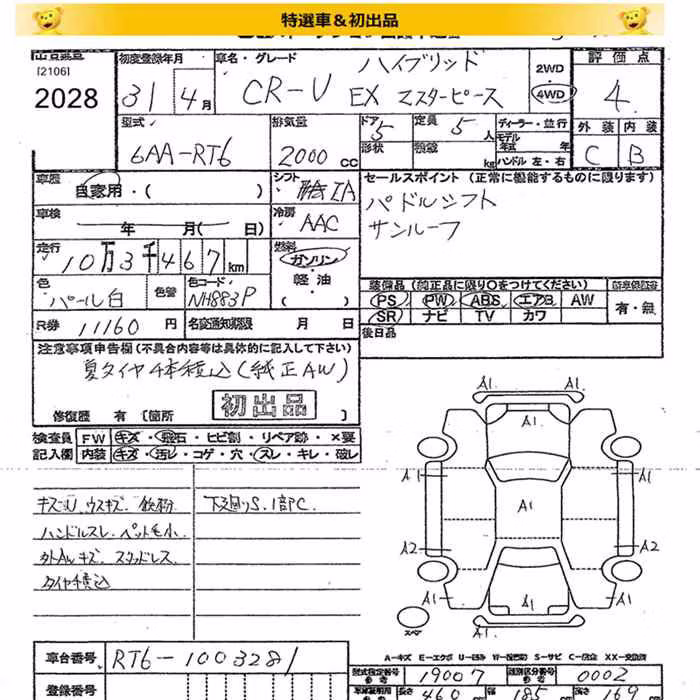 特選車&初出品
[2106]
2028
初度登録年月
31年4月
車名・グレード
ハイブリッド
CR-V EX マスターピース
2WD
4WD
評価点
4
外装 内装
C B
型式
6AA-RT6
排気量
2000cc
ドア 5
形状
定員 5人
積載 kg
ディーラー・並行
モデル年式 年
ハンドル 左・右
車歴
自家用・( )
シフト
IA
セールスポイント (正常に機能するものに限ります)
パドルシフト
サンルーフ
車検
年 月( 日)
冷房
AAC
走行
10万3千467km
燃料
ガソリン
軽油
( )
色
パール白
色替
色コード
NH883P
装備品 (純正品に限り○をつけてください)
PS PW ABS エアB AW
SR ナビ TV カワ
有・無
R券 11160円
名変通知期限 月 日
後日品
注意事項申告欄 (不具合内容等は具体的に記入して下さい)
夏タイヤ4本積込(純正AW)
初出品
修復歴 有 [箇所 ]
検査員 FW キズ・飛石・ヒビ割・リペア跡・×要
記入欄 内装 キズ・汚レ・コゲ・穴・スレ・キレ・破レ
キズU ウスキズ 鉄粉
ハンドルスレ、ペット毛小
外AWキズ スタッドレス
タイヤ積込
下廻りS、1部PC
A1 A1
A1
A1 A1
A1
A2 A2
A1
A1 A1
スペア
A-キズ E-エクボ U-凹み W-補修跡 S-サビ C-腐食 XX-交換済
車台番号 RT6-1003281
登録番号
型式指定番号 19007 類別区分番号 0002
長さ 460 幅 185 高さ 169